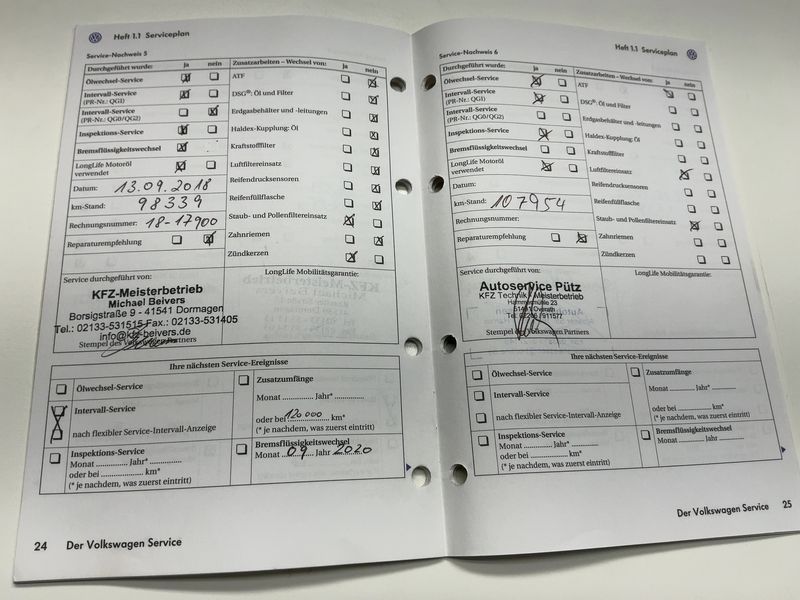 Heft 1.1 Serviceplan
Service-Nachweis 5
Durchgeführt wurde: ja nein
Ölwechsel-Service
Intervall-Service
(PR-Nr.: QG1)
Intervall-Service
(PR-Nr.: QG0/QG2)
Inspektions-Service
Bremsflüssigkeitswechsel
LongLife Motoröl
verwendet
Datum: 13.09.2018
km-Stand: 98339
Rechnungsnummer: 18-17900
Reparaturempfehlung
Zusatzarbeiten – Wechsel von: ja nein
ATF
DSG®: Öl und Filter
Erdgasbehälter und -leitungen
Haldex-Kupplung: Öl
Kraftstofffilter
Luftfiltereinsatz
Reifendrucksensoren
Reifenfüllflasche
Staub- und Pollenfiltereinsatz
Zahnriemen
Zündkerzen
Service durchgeführt von:
KFZ-Meisterbetrieb
Michael Beivers
Borsigstraße 9 - 41541 Dormagen
Tel.: 02133-531515 Fax.: 02133-531405
info@kfz-beivers.de
Stempel des Volkswagen Partners
LongLife Mobilitätsgarantie:
Ihre nächsten Service-Ereignisse
Ölwechsel-Service
Intervall-Service
nach flexibler Service-Intervall-Anzeige
Inspektions-Service
Monat .............. Jahr* ..............
oder bei .................... km*
(* je nachdem, was zuerst eintritt)
Zusatzumfänge
Monat .............. Jahr* ..............
oder bei 120 000 km*
(* je nachdem, was zuerst eintritt)
Bremsflüssigkeitswechsel
Monat 09 Jahr 2020
24 Der Volkswagen Service
Heft 1.1 Serviceplan
Service-Nachweis 6
Durchgeführt wurde: ja nein
Ölwechsel-Service
Intervall-Service
(PR-Nr.: QG1)
Intervall-Service
(PR-Nr.: QG0/QG2)
Inspektions-Service
Bremsflüssigkeitswechsel
LongLife Motoröl
verwendet
Datum:
km-Stand: 107954
Rechnungsnummer:
Reparaturempfehlung
Zusatzarbeiten – Wechsel von: ja nein
ATF
DSG®: Öl und Filter
Erdgasbehälter und -leitungen
Haldex-Kupplung: Öl
Kraftstofffilter
Luftfiltereinsatz
Reifendrucksensoren
Reifenfüllflasche
Staub- und Pollenfiltereinsatz
Zahnriemen
Zündkerzen
Service durchgeführt von:
Autoservice Pütz
KFZ Technik - Meisterbetrieb
Hammermühle 23
51491 Overath
Stempel des Volkswagen Partners
LongLife Mobilitätsgarantie:
Ihre nächsten Service-Ereignisse
Ölwechsel-Service
Intervall-Service
nach flexibler Service-Intervall-Anzeige
Inspektions-Service
Monat .............. Jahr* ..............
oder bei .................... km*
(* je nachdem, was zuerst eintritt)
Zusatzumfänge
Monat .............. Jahr* ..............
oder bei .................... km*
(* je nachdem, was zuerst eintritt)
Bremsflüssigkeitswechsel
Monat .............. Jahr ..............
Der Volkswagen Service 25